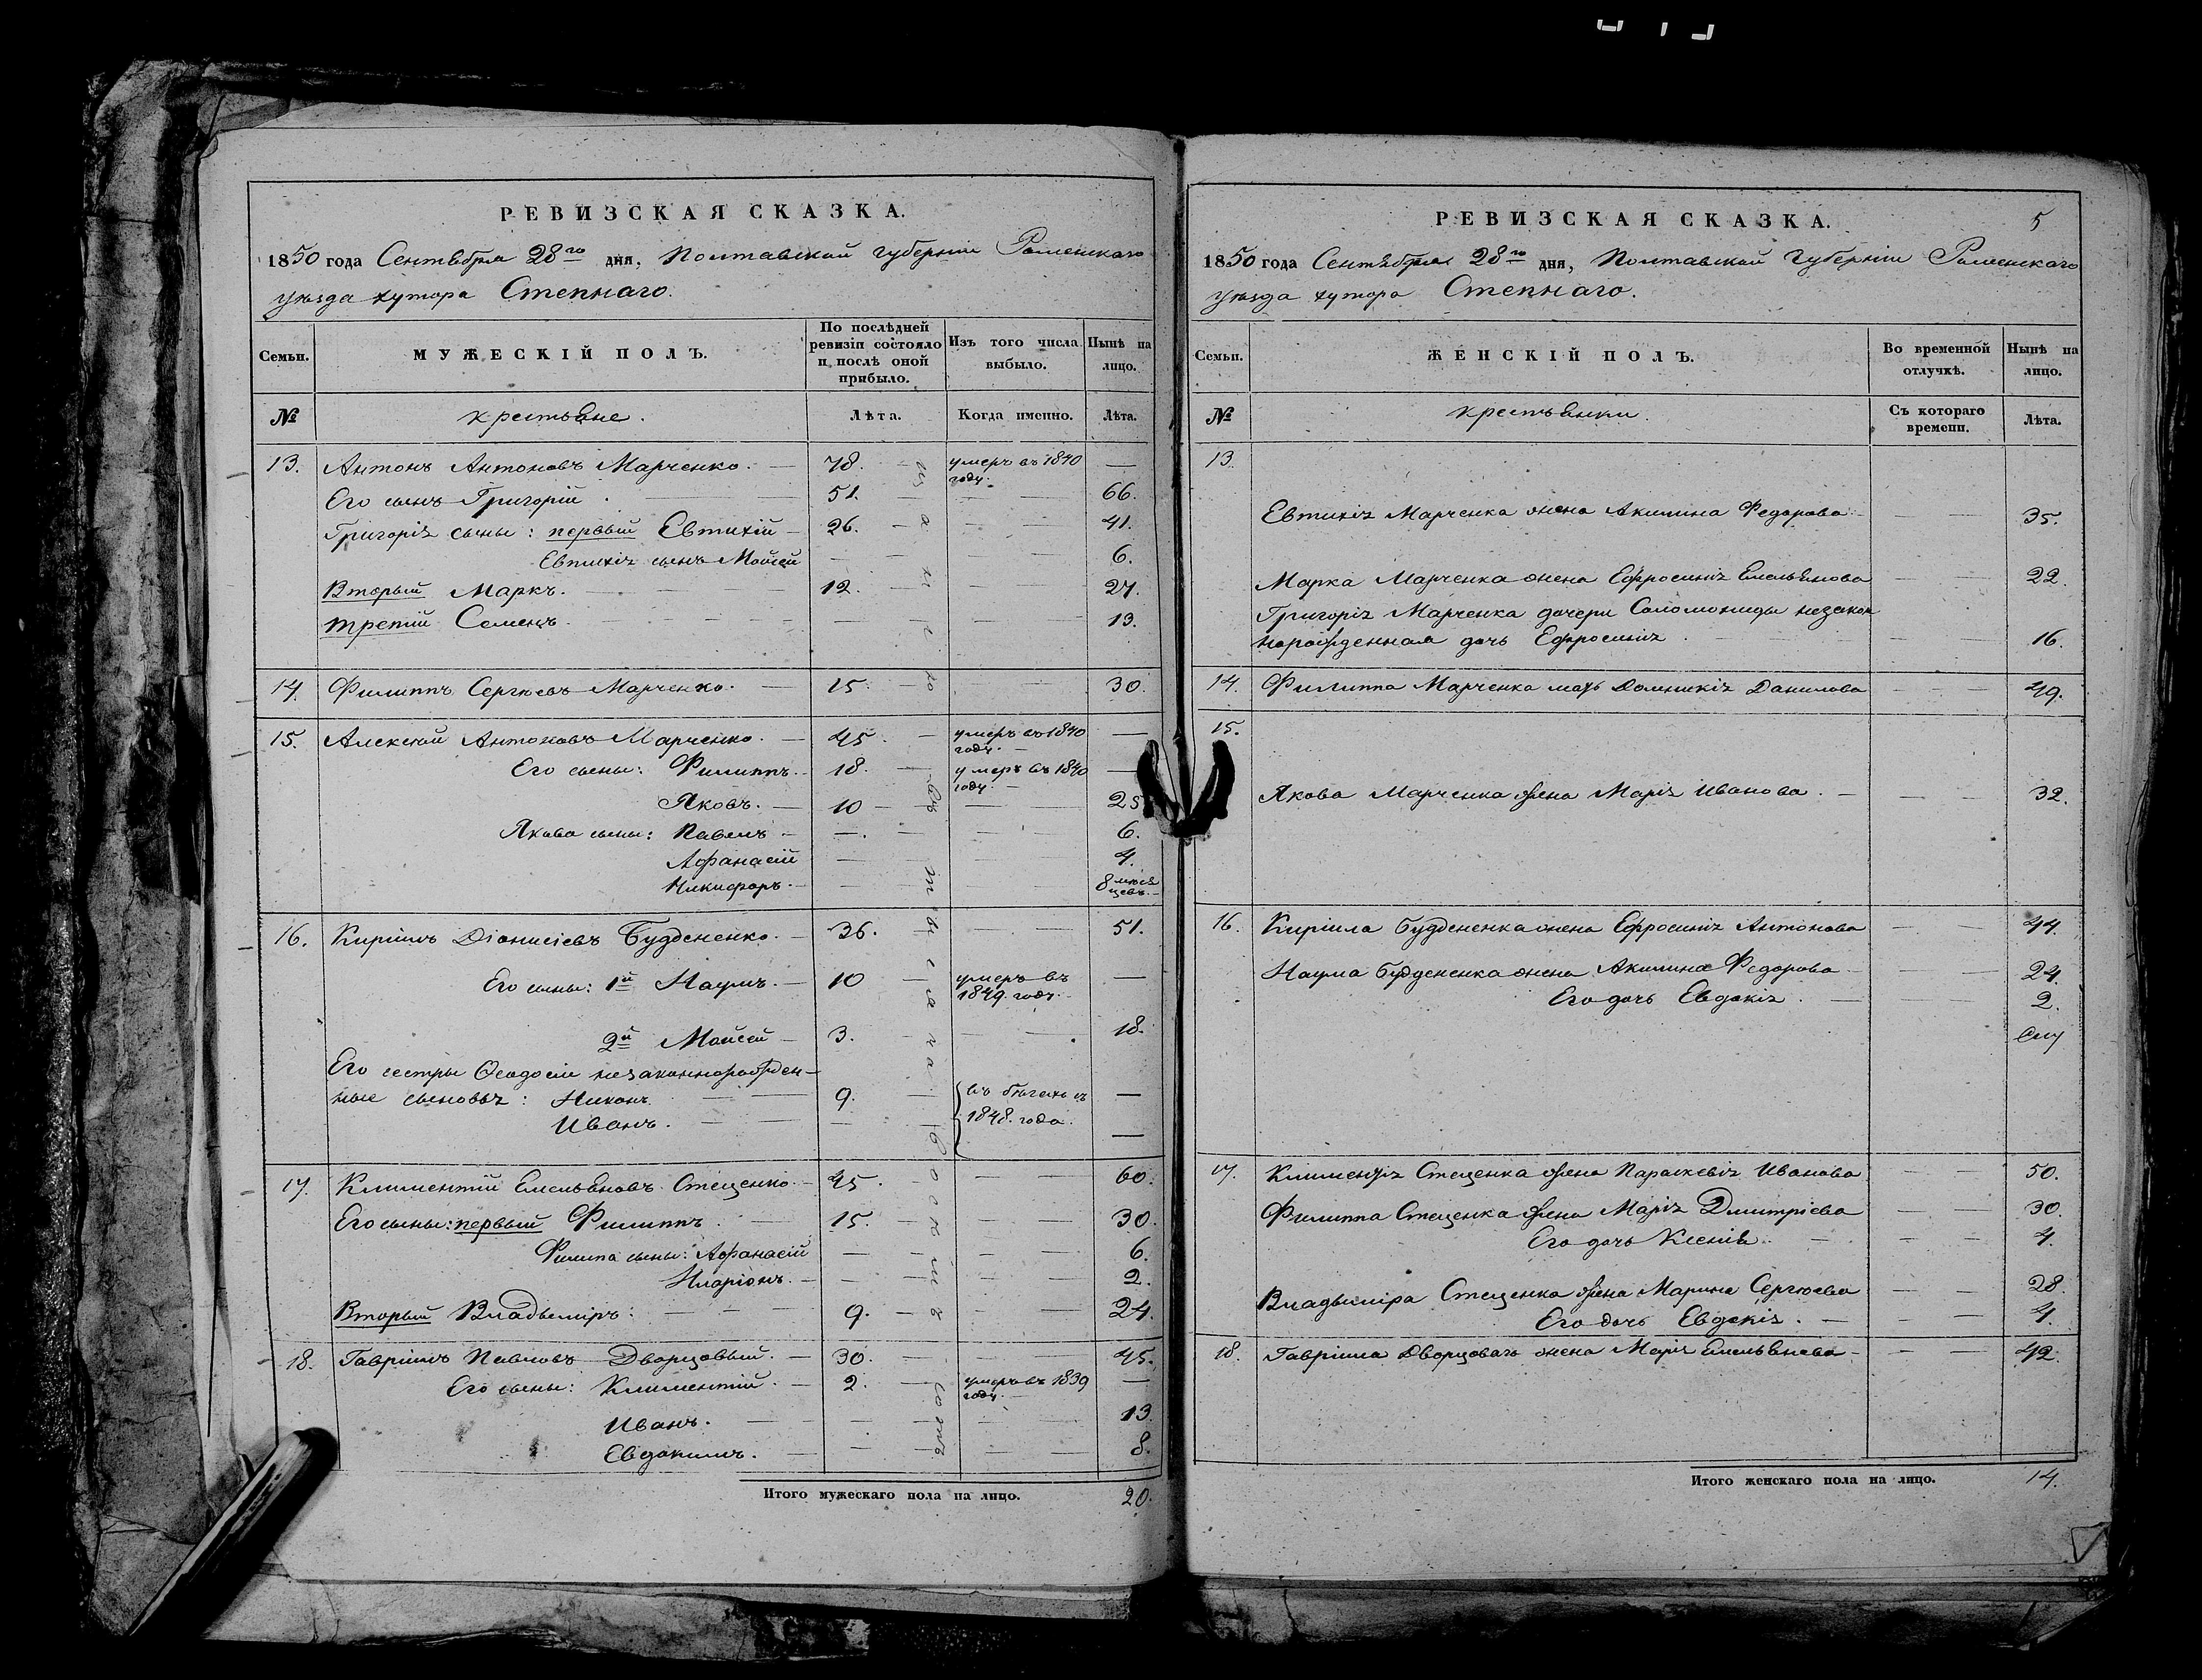 РЕВИЗСКАЯ СКАЗКА.
1850 года Сентября 28го дня, Полтавской губерніи Роменскаго
уѣзда хутора Степнаго.
Семьи. МУЖЕСКІЙ ПОЛЪ. По послѣдней ревизіи состояло и послѣ оной прибыло. Изъ того числа выбыло. Нынѣ на лицо.
№ крестьяне. Лѣта. Когда именно. Лѣта.
13. Антонъ Антоновъ Марченко. — 78. — умеръ въ 1840 году. —
Его сынъ Григорій. 51. — — 66.
Григорія сыны: первый Евтихій — 26. — — 41.
Евтихія сынъ Мойсей — — — 6.
Вторый Маркъ. — 12. — — 27.
третій Семенъ. — — — — 13.
14. Филиппъ Сергѣевъ Марченко. — 15. — — 30.
15. Алексѣй Антоновъ Марченко. — 45. — умеръ въ 1840 году. —
Его сыны: Филиппъ. — 18. — умеръ въ 1840 году. —
Яковъ. — 10 — — 25
Якова сыны: Павелъ — — — — 6.
Афанасій — — — 4.
Никифоръ. — — — — 8 мѣся цевъ. —
16. Кирилъ Діонисіевъ Будененко. — 36. — — 51.
Его сыны: 1й Наумъ. — 10 — умеръ въ 1849. году. —
2й Мойсей — 3. — — 18.
Его сестры Феодосіи незаконнорожден-
ные сыновья: Никонъ. — 9. — въ бѣгахъ съ 1848. года. —
Иванъ. — — — —
17. Климентій Емельяновъ Стеценко. — 45. — — 60.
Его сыны: первый Филиппъ. — 15. — — 30.
Филипа сыны: Афанасій — — — 6.
Иларіонъ. — — — — 2.
Вторый Владыміръ: — 9. — — 24.
18. Гавріилъ Павловъ Дворцовый. — 30. — — 45.
Его сыны: Климентій. — 2. — умеръ въ 1839 году. —
Иванъ. — — — — 13.
Евдокимъ. — — — — 8.
Итого мужескаго пола на лицо. 20.
РЕВИЗСКАЯ СКАЗКА. 5
1850 года Сентября 28го дня, Полтавской Губерніи Роменскаго
уѣзда хутора Степнаго.
Семьи. ЖЕНСКІЙ ПОЛЪ. Во временной отлучкѣ. Нынѣ на лицо.
№ крестьянки. Съ котораго времени. Лѣта.
13.
Евтихія Марченка жена Акилина Федорова — — 35.
Марка Марченка жена Ефросинія Емельянова — — 22.
Григорія Марченка дочери Соломониды незакон
норожденная дочь Ефросинія. — — 16.
14. Филиппа Марченка мать Домникія Данилова — — 49.
15.
Якова Марченка жена Марія Иванова. — — — 32.
16. Кирила Будененка жена Ефросинія Антонова — — 44.
Наума Будененка жена Акилина Федорова — — 24.
Его дочь Евдокія. — — 2.
17. Климентія Стеценка жена Параскевія Иванова — — 50.
Филиппа Стеценка жена Марія Дмитріева — — 30.
Его дочь Ксенія. — — 4.
Владыміра Стеценка жена Марина Сергѣева — — 28.
Его дочь Евдокія. — — 4.
18. Гавріила Дворцоваго жена Марія Емельянова — — — 42.
Итого женскаго пола на лицо. 14.